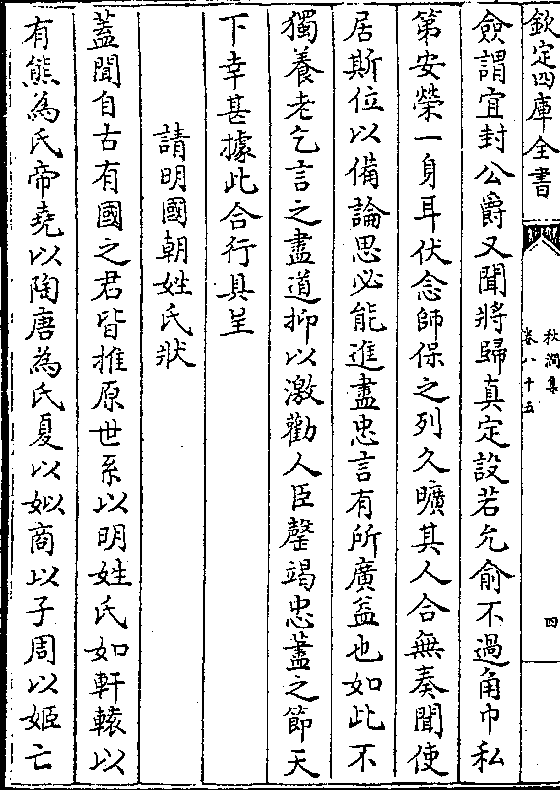 欽定四庫全書
秋澗集
卷八十五
四
僉謂宜封公爵又聞將歸真定設若允俞不過角巾私
第安榮一身耳伏念師保之列久曠其人合無奏聞使
居斯位以備論思必能進盡忠言有所廣益也如此不
獨養老乞言之盡道抑以激勸人臣罄竭忠藎之節天
下幸甚據此合行具呈
請明國朝姓氏狀
蓋聞自古有國之君皆推原世系以明姓氏如軒轅以
有熊為氏帝堯以陶唐為氏夏以姒商以子周以姬亡